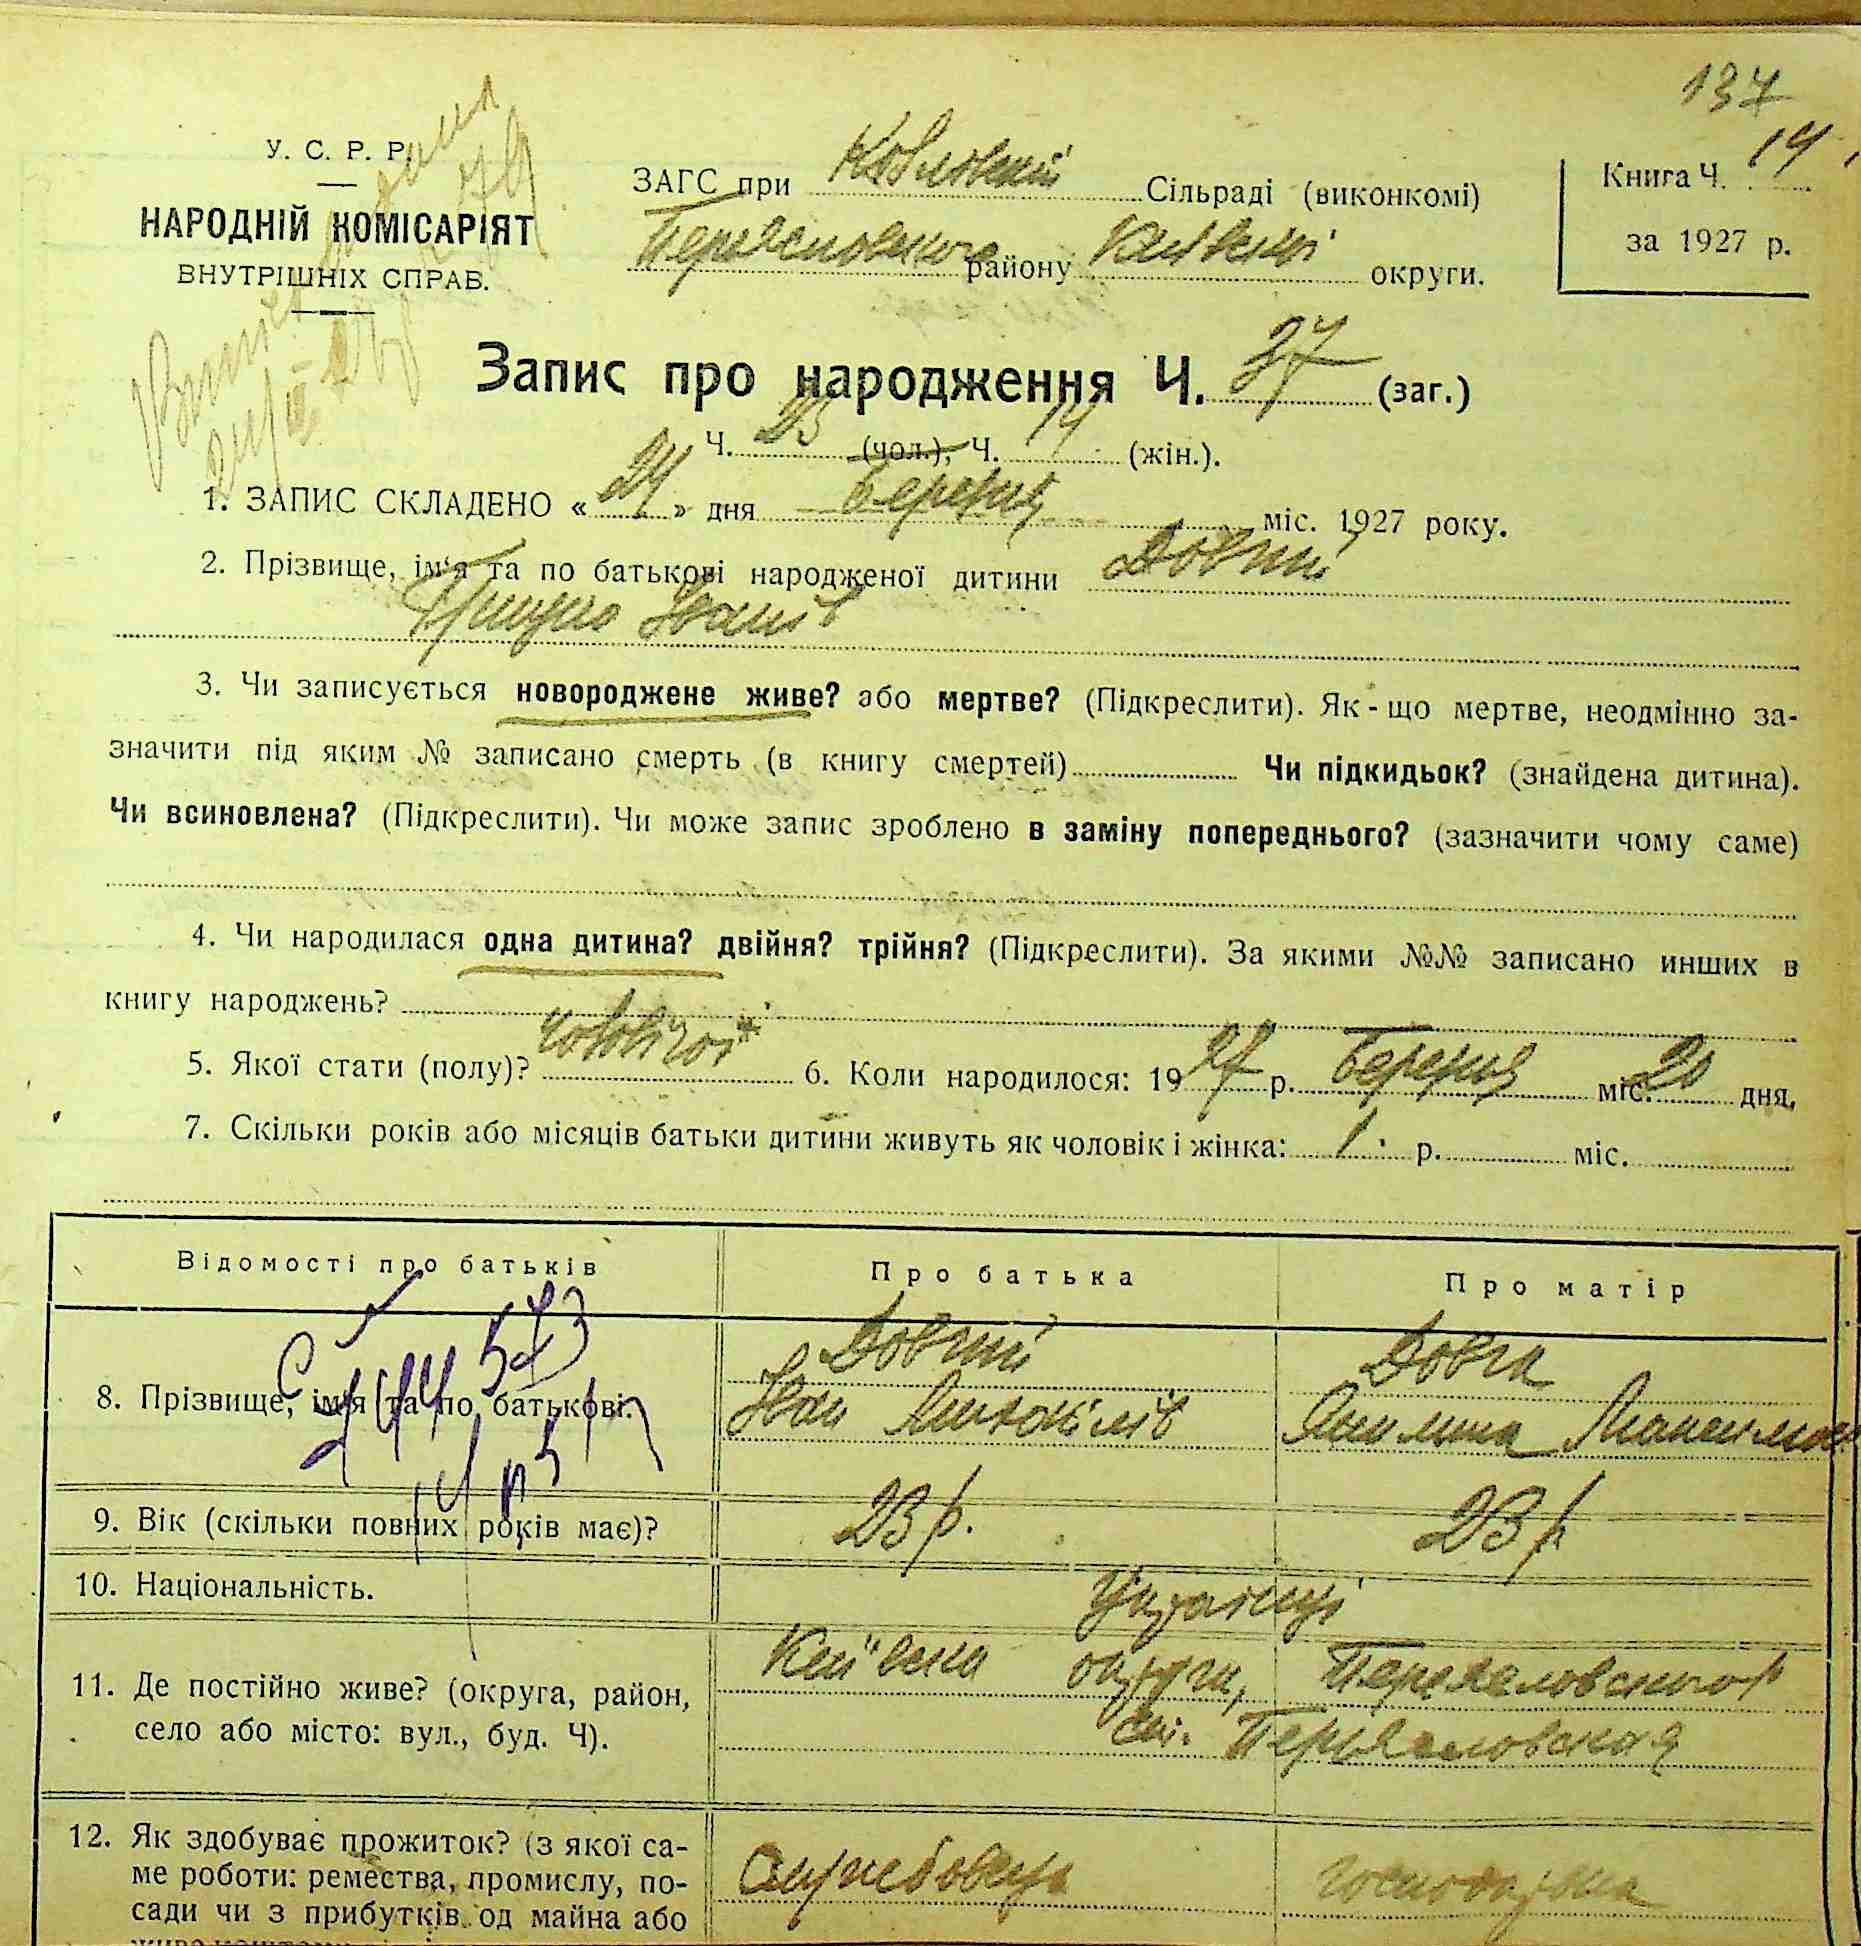 137
У. С. Р. Р.
НАРОДНІЙ КОМІСАРІЯТ
ВНУТРІШНІХ СПРАВ.
ЗАГС при Сільраді (виконкомі)
району Київської округи.
Книга Ч. 14
за 1927 р.
Запис про народження Ч. 37 (заг.)
Ч. 23 (чол.), Ч. 14 (жін.).
1. ЗАПИС СКЛАДЕНО « 24 » дня Березня міс. 1927 року.
2. Прізвище, ім'я та по батькові народженої дитини Довгий
Грицько Іванів
3. Чи записується новороджене живе? або мертве? (Підкреслити). Як-що мертве, неодмінно за-
значити під яким № записано смерть (в книгу смертей) Чи підкидьок? (знайдена дитина).
Чи всиновлена? (Підкреслити). Чи може запис зроблено в заміну попереднього? (зазначити чому саме)
4. Чи народилася одна дитина? двійня? трійня? (Підкреслити). За якими №№ записано инших в
книгу народжень?
5. Якої стати (полу)? чоловічої 6. Коли народилося: 1927 р. Березня міс. 20 дня.
7. Скільки років або місяців батьки дитини живуть як чоловік і жінка: 1 р. міс.
Відомості про батьків Про батька Про матір
8. Прізвище, ім'я та по батькові. Довгий Довга
Іван Михайлів
9. Вік (скільки повних років має)? 23 р. 23 р.
10. Національність. Українці
11. Де постійно живе? (округа, район, Київська округи,
село або місто: вул., буд. Ч).
12. Як здобуває прожиток? (з якої са-
ме роботи: ремества, промислу, по- Службовець
сади чи з прибутків од майна або